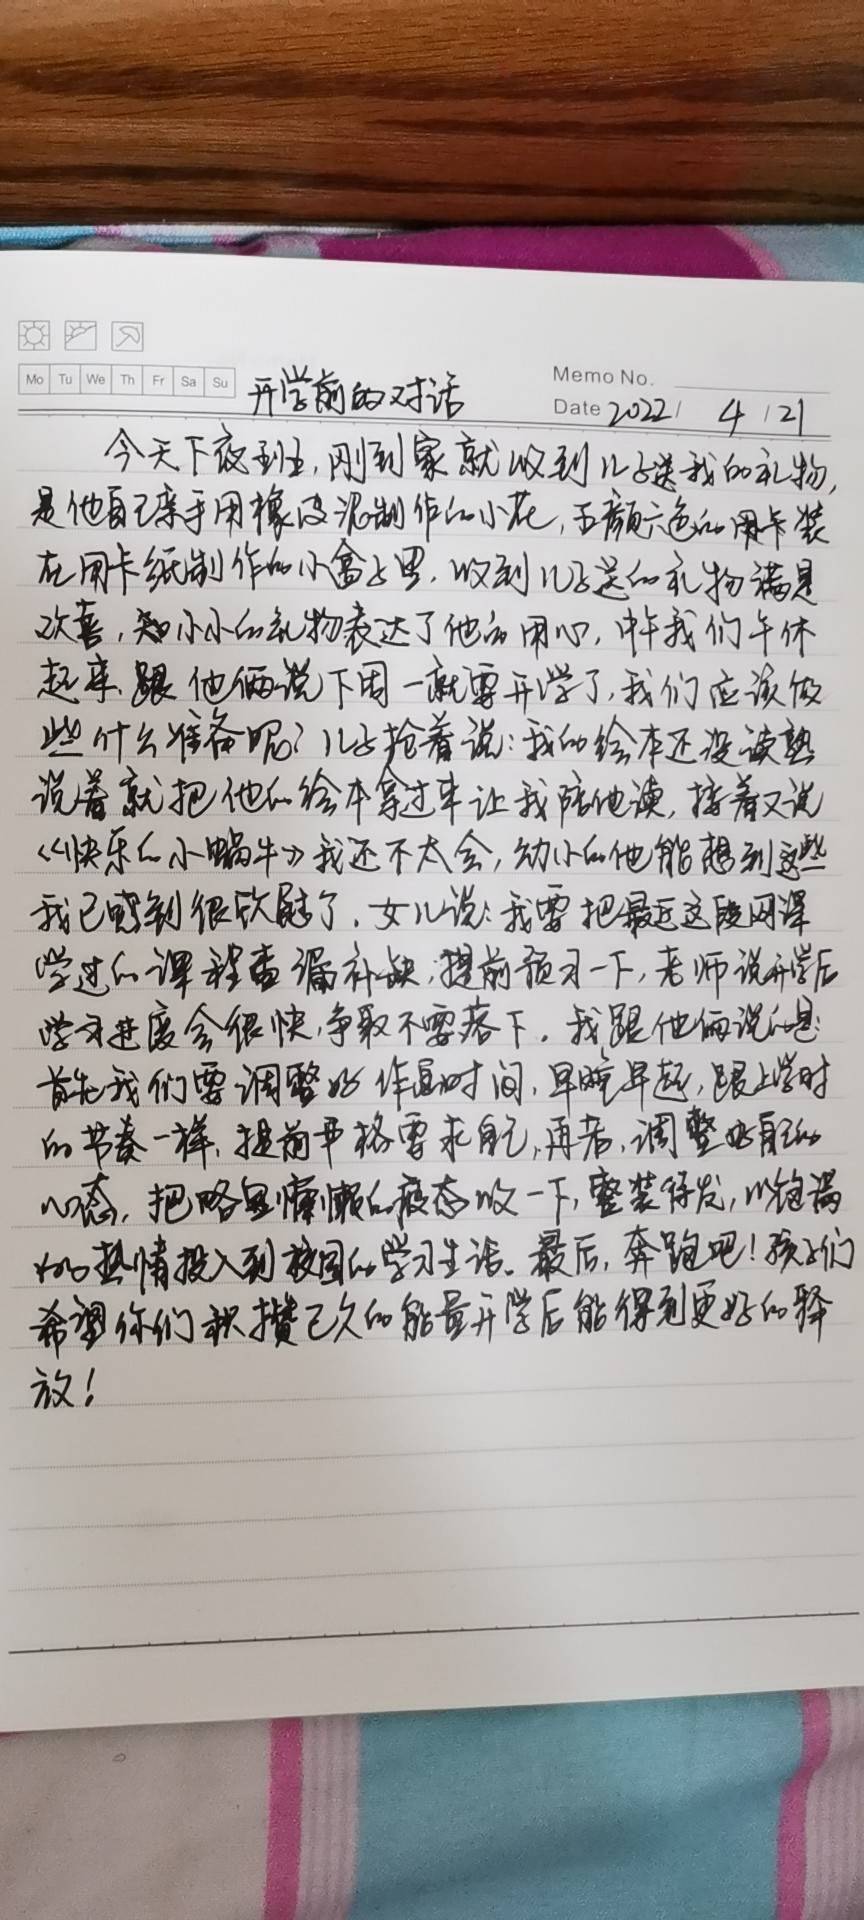 Mo Tu We Th Fr Sa Su
Memo No.
开学前的对话
Date 2022/ 4 / 21
今天下夜到家,刚到家就收到儿子送我的礼物,
是他自己亲手用橡皮泥制作的小花,五颜六色的用卡装
在用卡纸制作的小盒子里,收到儿子送的礼物满是
欢喜,知小小的礼物表达了他的用心,中午我们午休
起来,跟他俩说下周一就要开学了,我们应该做
些什么准备呢?儿子抢着说:我的绘本还没读熟
说着就把他的绘本拿过来让我陪他读,接着又说
《快乐的小蜗牛》我还不太会,幼小的他能想到这些
我已感到很欣慰了.女儿说:我要把最近这段网课
学过的课程查漏补缺,提前预习一下,老师说开学后
学习进度会很快,争取不要落下.我跟他俩说的是:
首先我们要调整好作息时间,早睡早起,跟上学时
的节奏一样,提前严格要求自己,再者,调整好自己的
心态,把略显慵懒的疲态收一下,整装待发,以饱满
的热情投入到校园的学习生活.最后,奔跑吧!孩子们
希望你们积攒已久的能量开学后能得到更好的释
放!